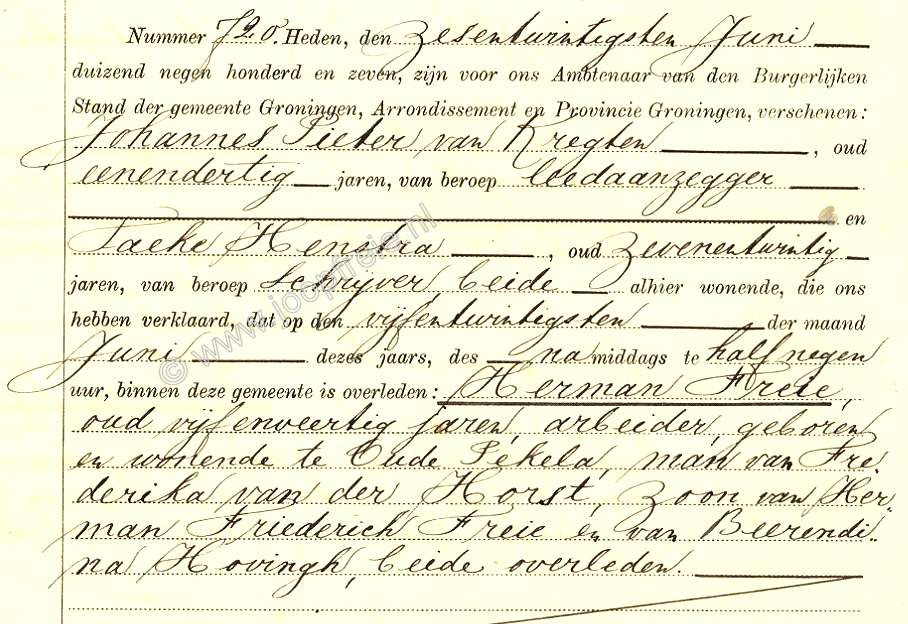 Nummer 720. Heden, den zesentwintigsten Juni
duizend negen honderd en zeven, zijn voor ons Ambtenaar van den Burgerlijken
Stand der gemeente Groningen, Arrondissement en Provincie Groningen, verschenen:
Johannes Pieter van Kregten, oud
eenendertig jaren, van beroep leedaanzegger
en
Taeke Henstra, oud zevenentwintig
jaren, van beroep Schryver, beide alhier wonende, die ons
hebben verklaard, dat op den vijfentwintigsten der maand
Juni dezes jaars, des namiddags te half negen
uur, binnen deze gemeente is overleden: Herman Freie,
oud vijfenveertig jaren, arbeider, geboren
en wonende te Oude Pekela, man van Fre„
derika van der Horst, zoon van Her„
man Friederich Freie en van Beerendi„
na Hovingh, beide overleden.
© www.joopfreie.nl